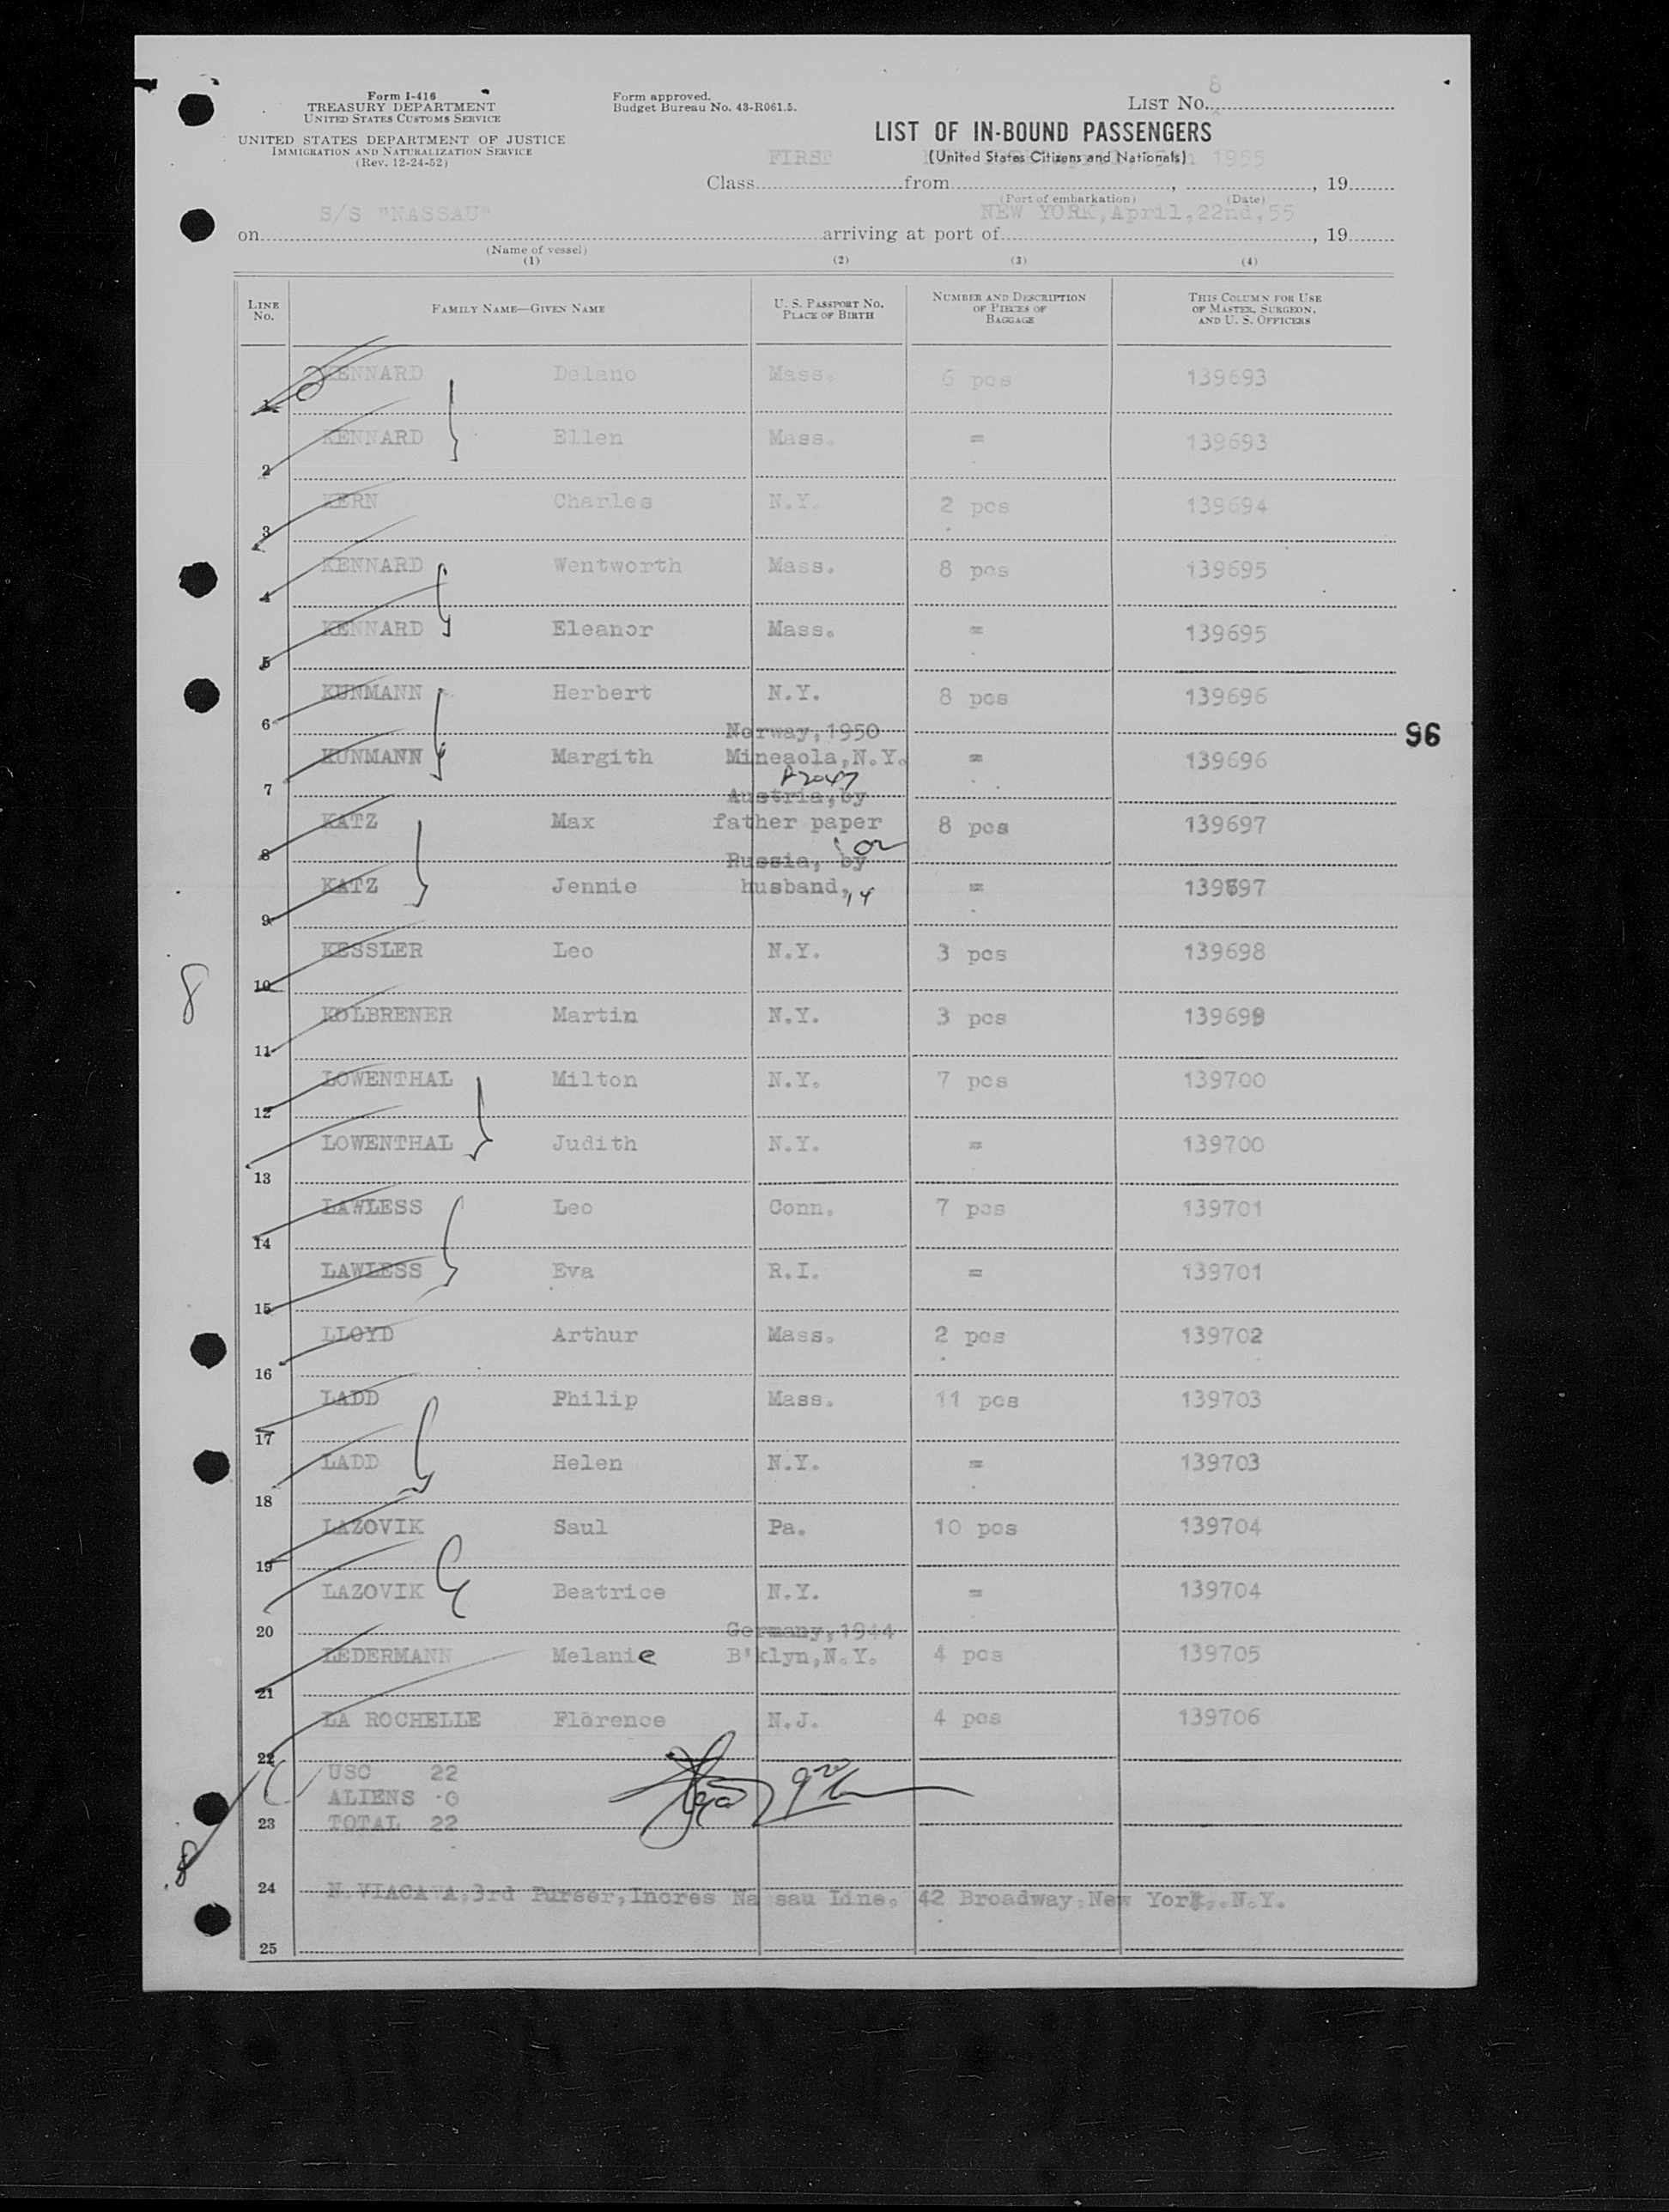 8
Form I-416
TREASURY DEPARTMENT
UNITED STATES CUSTOMS SERVICE
UNITED STATES DEPARTMENT OF JUSTICE
IMMIGRATION AND NATURALIZATION SERVICE
(Rev. 12-24-52)
Form approved.
Budget Bureau No. 43-R061.5.
LIST NO.
LIST OF IN-BOUND PASSENGERS
(United States Citizens and Nationals)
FIRST 1955
Class from , , 19
(Port of embarkation) (Date)
S/S "NASSAU" NEW YORK, April, 22nd, 55
on arriving at port of , 19
(Name of vessel)
(1) (2) (3) (4)
LINE NO. FAMILY NAME—GIVEN NAME U. S. PASSPORT NO. PLACE OF BIRTH NUMBER AND DESCRIPTION OF PIECES OF BAGGAGE THIS COLUMN FOR USE OF MASTER, SURGEON, AND U. S. OFFICERS
1 KENNARD Delano Mass. 6 pcs 139693
2 KENNARD Ellen Mass. = 139693
3 KERN Charles N.Y. 2 pcs 139694
4 KENNARD Wentworth Mass. 8 pcs 139695
5 KENNARD Eleanor Mass. = 139695
6 KUNMANN Herbert N.Y. 8 pcs 139696
Norway, 1950
96
7 KUNMANN Margith Mineaola, N.Y. = 139696
Austria, by
8 KATZ Max father paper 8 pcs 139697
Russia, by
9 KATZ Jennie husband, = 139697
10 KESSLER Leo N.Y. 3 pcs 139698
8
11 KOLBRENER Martin N.Y. 3 pcs 139699
12 LOWENTHAL Milton N.Y. 7 pcs 139700
13 LOWENTHAL Judith N.Y. = 139700
14 LAWLESS Leo Conn. 7 pcs 139701
15 LAWLESS Eva R.I. = 139701
16 LLOYD Arthur Mass. 2 pcs 139702
17 LADD Philip Mass. 11 pcs 139703
18 LADD Helen N.Y. = 139703
19 LAZOVIK Saul Pa. 10 pcs 139704
20 LAZOVIK Beatrice N.Y. = 139704
Germany, 1944
21 LEDERMANN Melanie B'klyn, N.Y. 4 pcs 139705
22 LA ROCHELLE Florence N.J. 4 pcs 139706
USC 22
ALIENS 0
23 TOTAL 22
24 3rd Purser, Incres Nassau Line. 42 Broadway New York, N.Y.
25